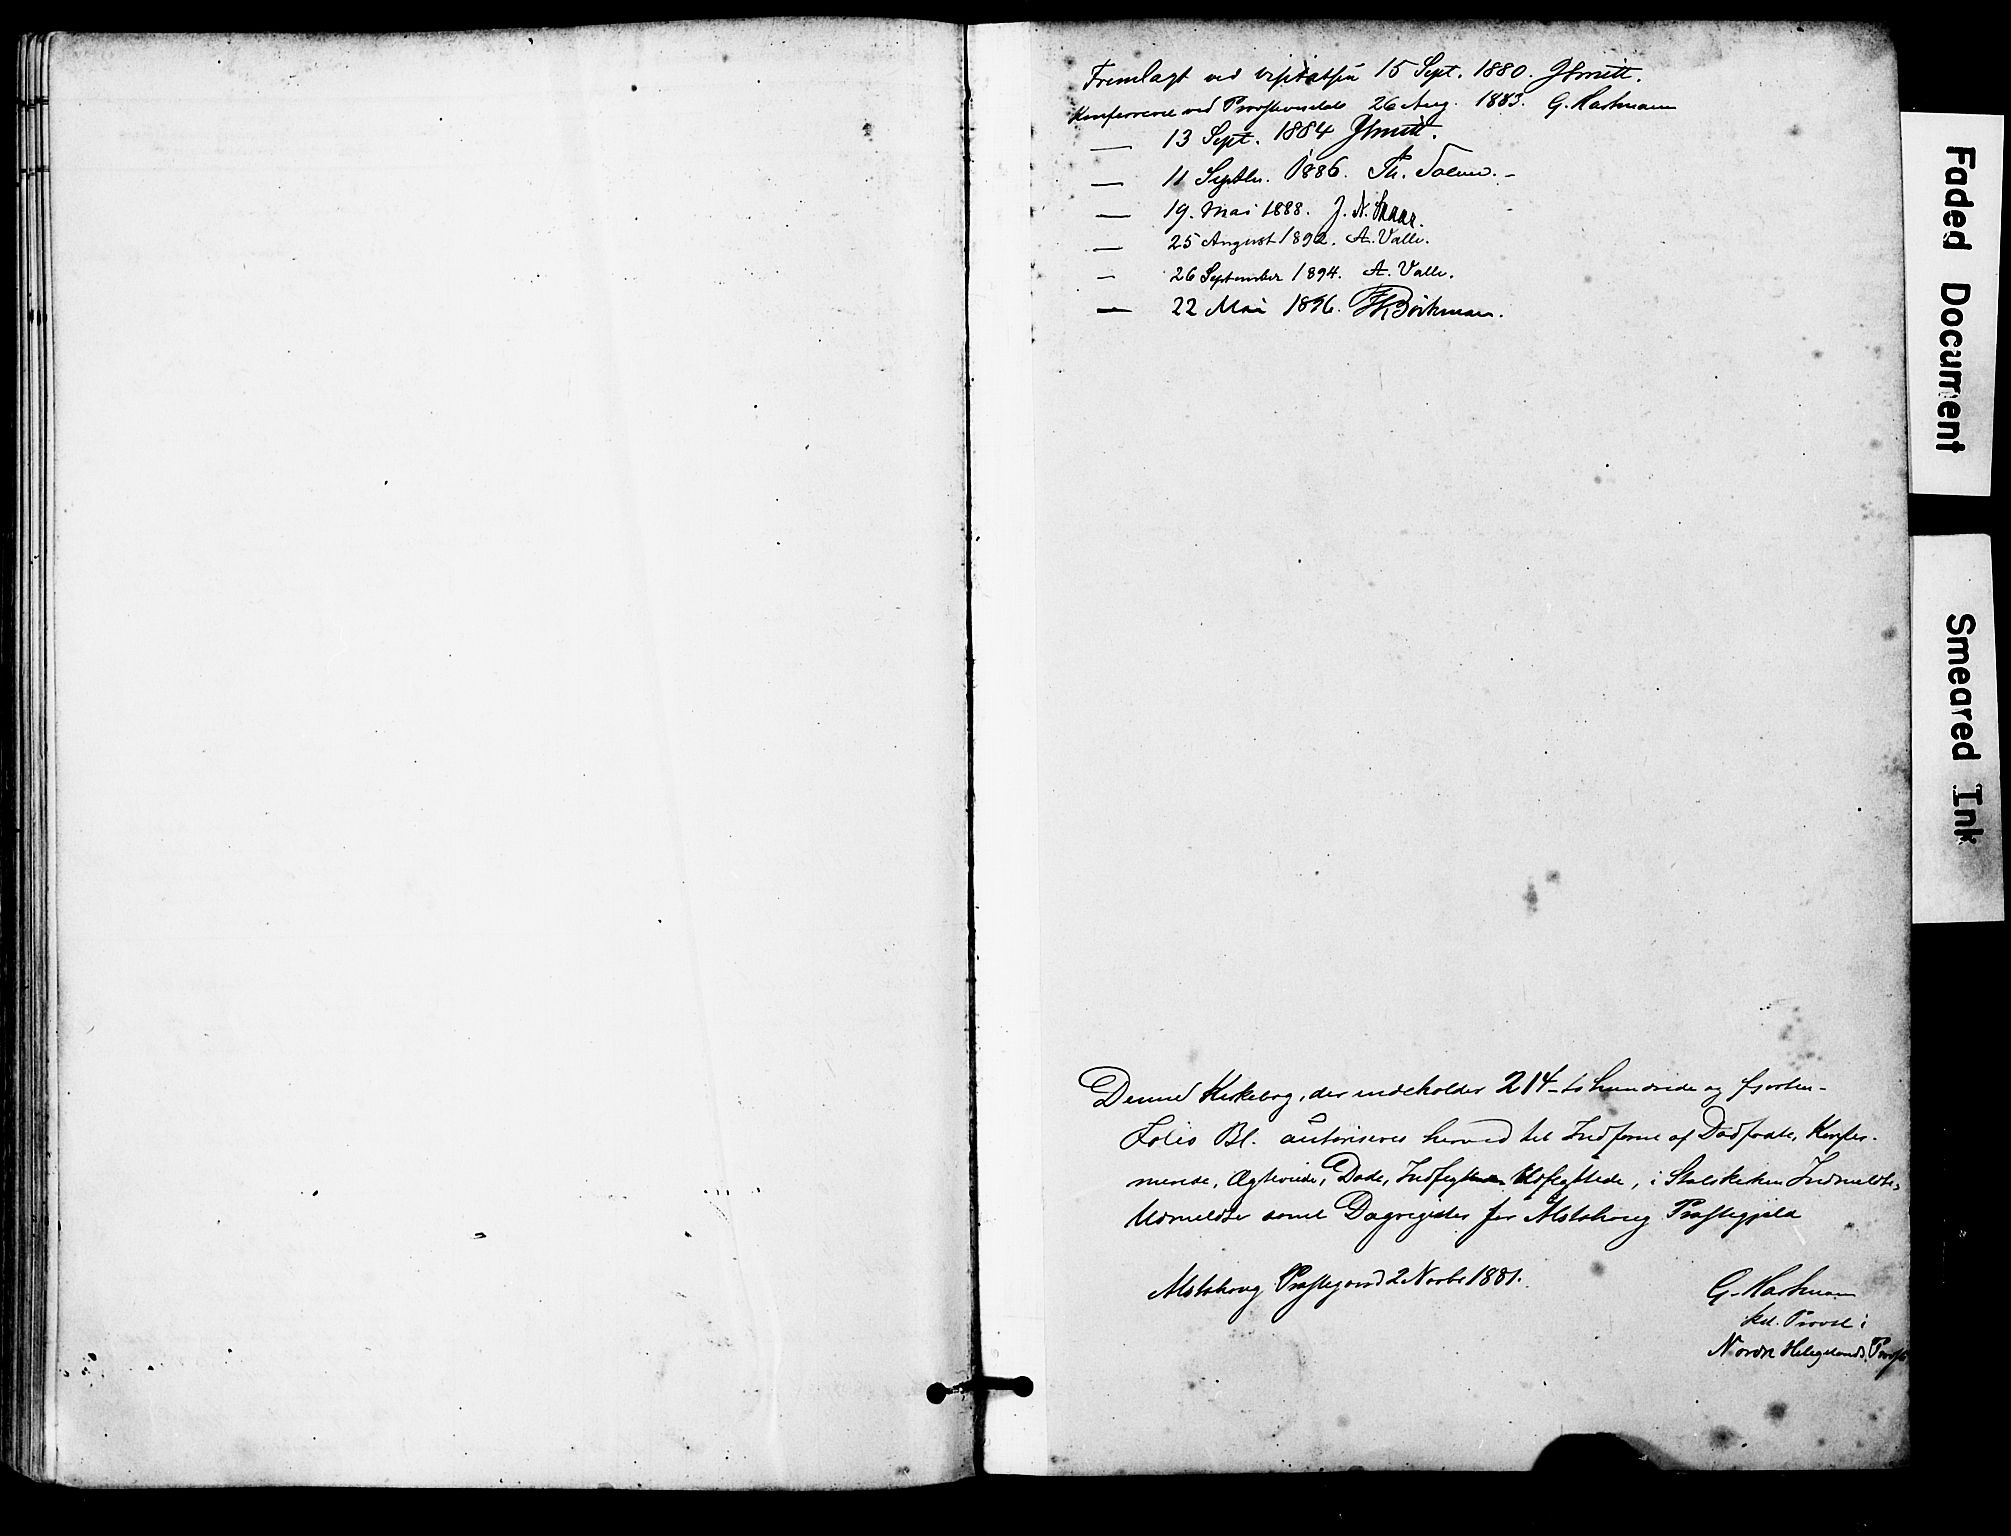 Fremlagt ved Visitatsen 15 Sept. 1880. JSmitt.
Konfereret ved Provstevisitats 26 Aug. 1883. G. Hartmann
— 13 Sept. 1884 JSmitt.
— 11 Septbr. 1886. Th.
— 19. Mai 1888. J. N. Skaar.
— 25 August 1892. A. Valle.
— 26 September 1894. A. Valle.
— 22 Mai 1896. Bøckman.
Denne Kirkebog, der indeholder 214 – to hundrede og fjorten –
Folio Bl. autoriseres herved til Indførsel af Dødfødte, Konfir-
merede, Ægteviede, Døde, Indflyttede Udflyttede, i Statskirken Indmeldte,
Udmeldte samt Dagregister for Alstahoug Præstegjæld
Alstahoug Præstegaard 2 Novbr 1881.
G. Hartmann
kst. Provst i
Nordre Helgelands Provsti
Faded Document
Smeared Ink